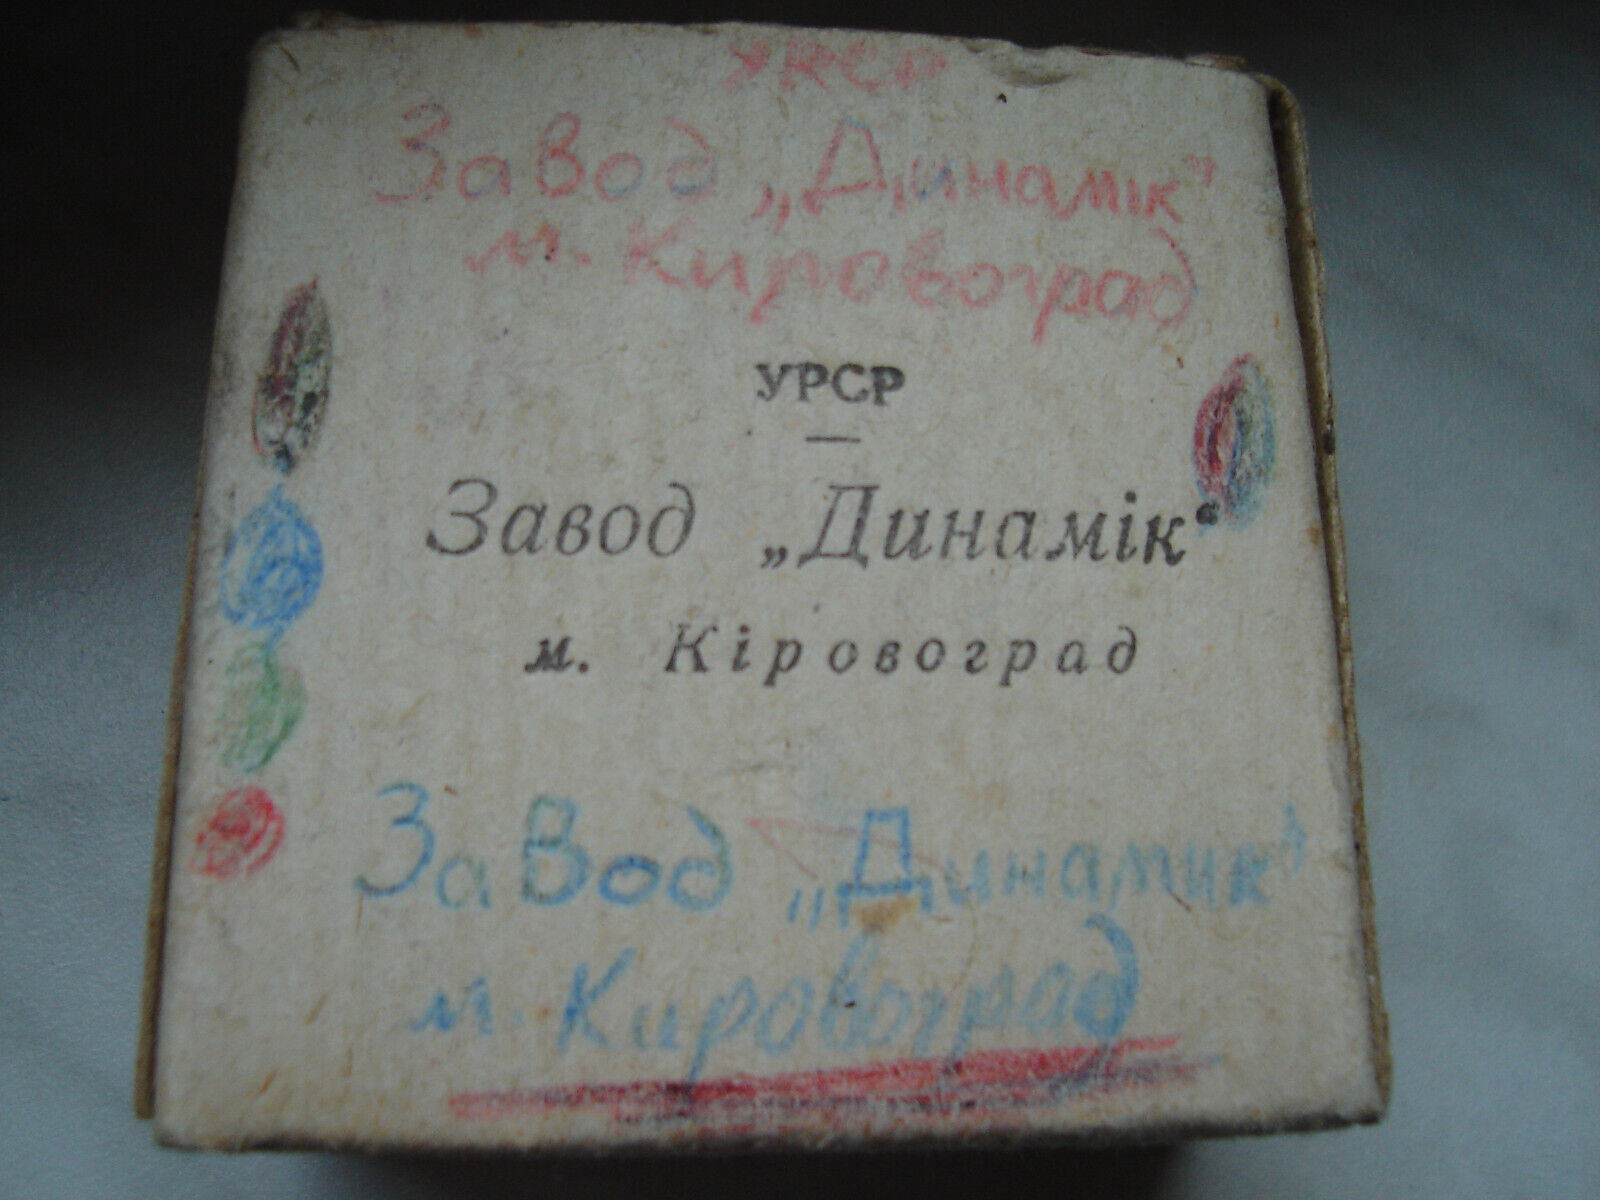 УРСР
Завод „Динамік"
м. Кировоград
УРСР
—
Завод „Динамік“
м. Кіровоград
Завод „Динамик"
м. Кировоград